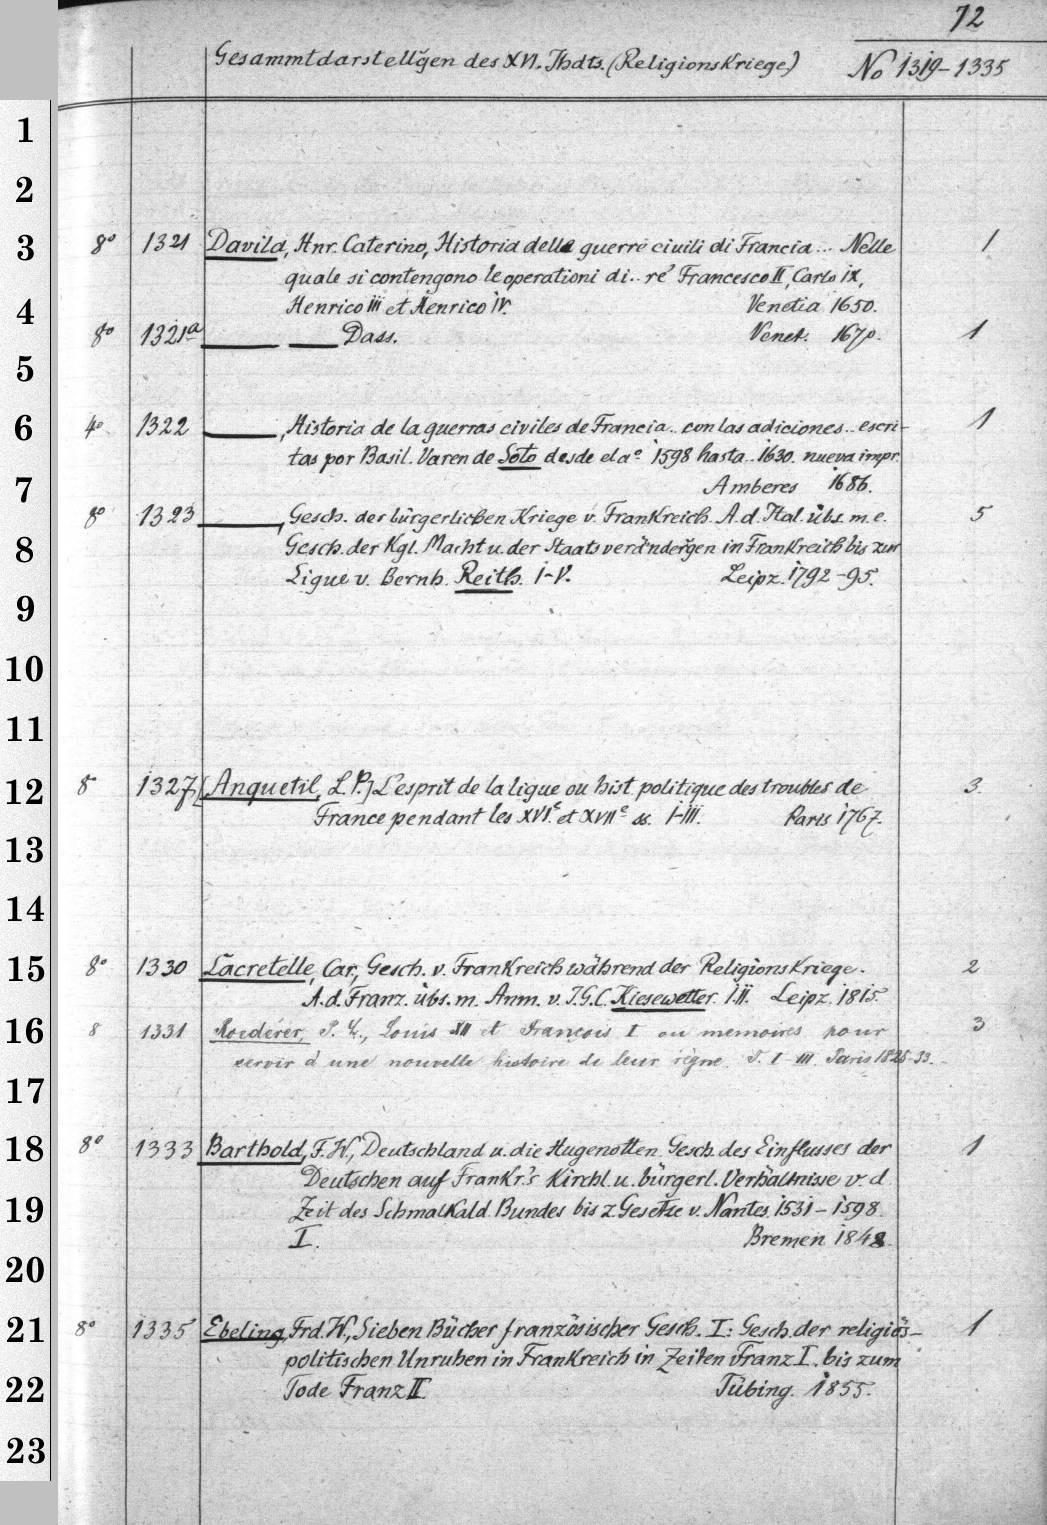 72
Gesammtdarstellgen des XVI. Jhdts. (Religionskriege) No 1319-1335
1
2
3
8° 1321 Davila, Hnr. Caterino, Historia delle guerre civili di Francia... Nelle 1
quale si contengono le operationi di.. re Francesco II, Carlo IX,
4
Henrico III et Henrico IV. Venetia 1650.
8° 1321a ——— ——— Dass. Venet. 1670. 1
5
6
4° 1322 ———, Historia de la guerras civiles de Francia.. con las adiciones.. escri- 1
tas por Basil. Varen de Soto desde el a° 1598 hasta.. 1630. nueva impr.
7
Amberes 1686.
8° 1323 ———, Gesch. der bürgerlichen Kriege v. Frankreich. A. d. Ital. übs. m. e. 5
8
Gesch. der Kgl. Macht u. der Staatsverändergen in Frankreich bis zur
Ligue v. Bernh. Reith. I-V. Leipz. 1792-95.
9
10
11
12
8° 1327 [Anquetil, L. P.] L'esprit de la ligue ou hist. politique des troubles de 3.
France pendant les XVIe et XVIIe ss. I-III. Paris 1767.
13
14
15
8° 1330 Lacretelle, Car., Gesch. v. Frankreich während der Religionskriege. 2
A. d. Franz. übs. m. Anm. v. J. G. C. Kiesewetter. I. II. Leipz. 1815.
16
8 1331 Roederer, P. L., Louis XII et François I ou memoires pour 3
servir à une nouvelle histoire de leur règne. T. I-III. Paris 1825-33.
17
18
8° 1333 Barthold, F. W., Deutschland u. die Hugenotten. Gesch. des Einflusses der 1
Deutschen auf Frankr.'s Kirchl. u. bürgerl. Verhältnisse v. d.
19
Zeit des Schmalkald. Bundes bis z. Gesetze v. Nantes. 1531-1598.
I. Bremen 1848.
20
21
8° 1335 Ebeling, Frd. W., Sieben Bücher französischer Gesch. I: Gesch. der religiös- 1
politischen Unruhen in Frankreich in Zeiten Franz I. bis zum
22
Tode Franz II. Tübing. 1855.
23